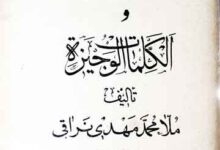 و
الكلمات الوجيزة
تألیف
ملا محمد مهدی نراقی